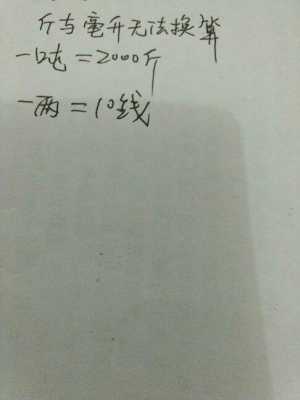 斤与毫升无法换算
一吨=2000斤
一两=10线